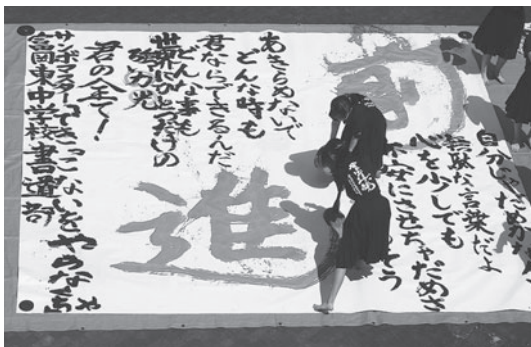 自分じゃだめ
無駄な言葉だよ
心を少しでも
不安にさせちゃだめさ
そう
前
進
あきらめないで
どんな時も
君ならできるんだ
どんな事も
世界にひとつだけの
力光
君の全て!
サンボマスターできっこないをやらなくちゃ
富岡東中学校書道部